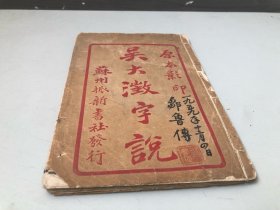 原本影印
吴大澂字説
蘇州振新書社發行
一九五六年十二月四日
鄒魯傳